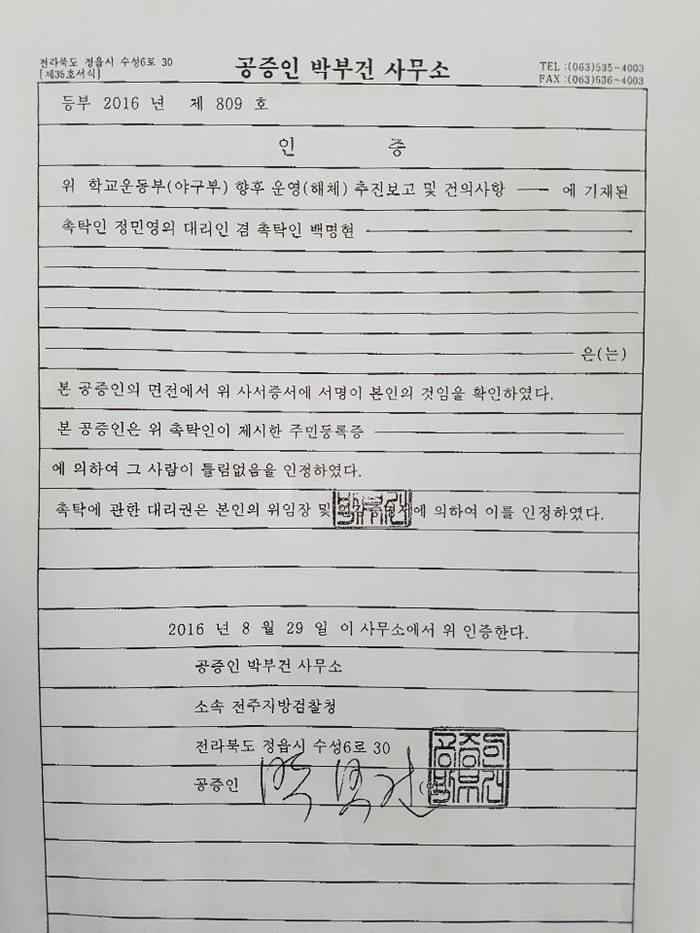 전라북도 정읍시 수성6로 30
[제35호서식]
공증인 박부건 사무소
TEL :(063)535-4003
FAX :(063)536-4003
등부 2016 년 제 809 호
인 증
위 학교운동부(야구부) 향후 운영(해체) 추진보고 및 건의사항 에 기재된
촉탁인 정민영의 대리인 겸 촉탁인 백명현
은(는)
본 공증인의 면전에서 위 사서증서에 서명이 본인의 것임을 확인하였다.
본 공증인은 위 촉탁인이 제시한 주민등록증
에 의하여 그 사람이 틀림없음을 인정하였다.
촉탁에 관한 대리권은 본인의 위임장 및 에 의하여 이를 인정하였다.
박부건
2016 년 8 월 29 일 이 사무소에서 위 인증한다.
공증인 박부건 사무소
소속 전주지방검찰청
전라북도 정읍시 수성6로 30
공증인 박부건
공증인
박부건